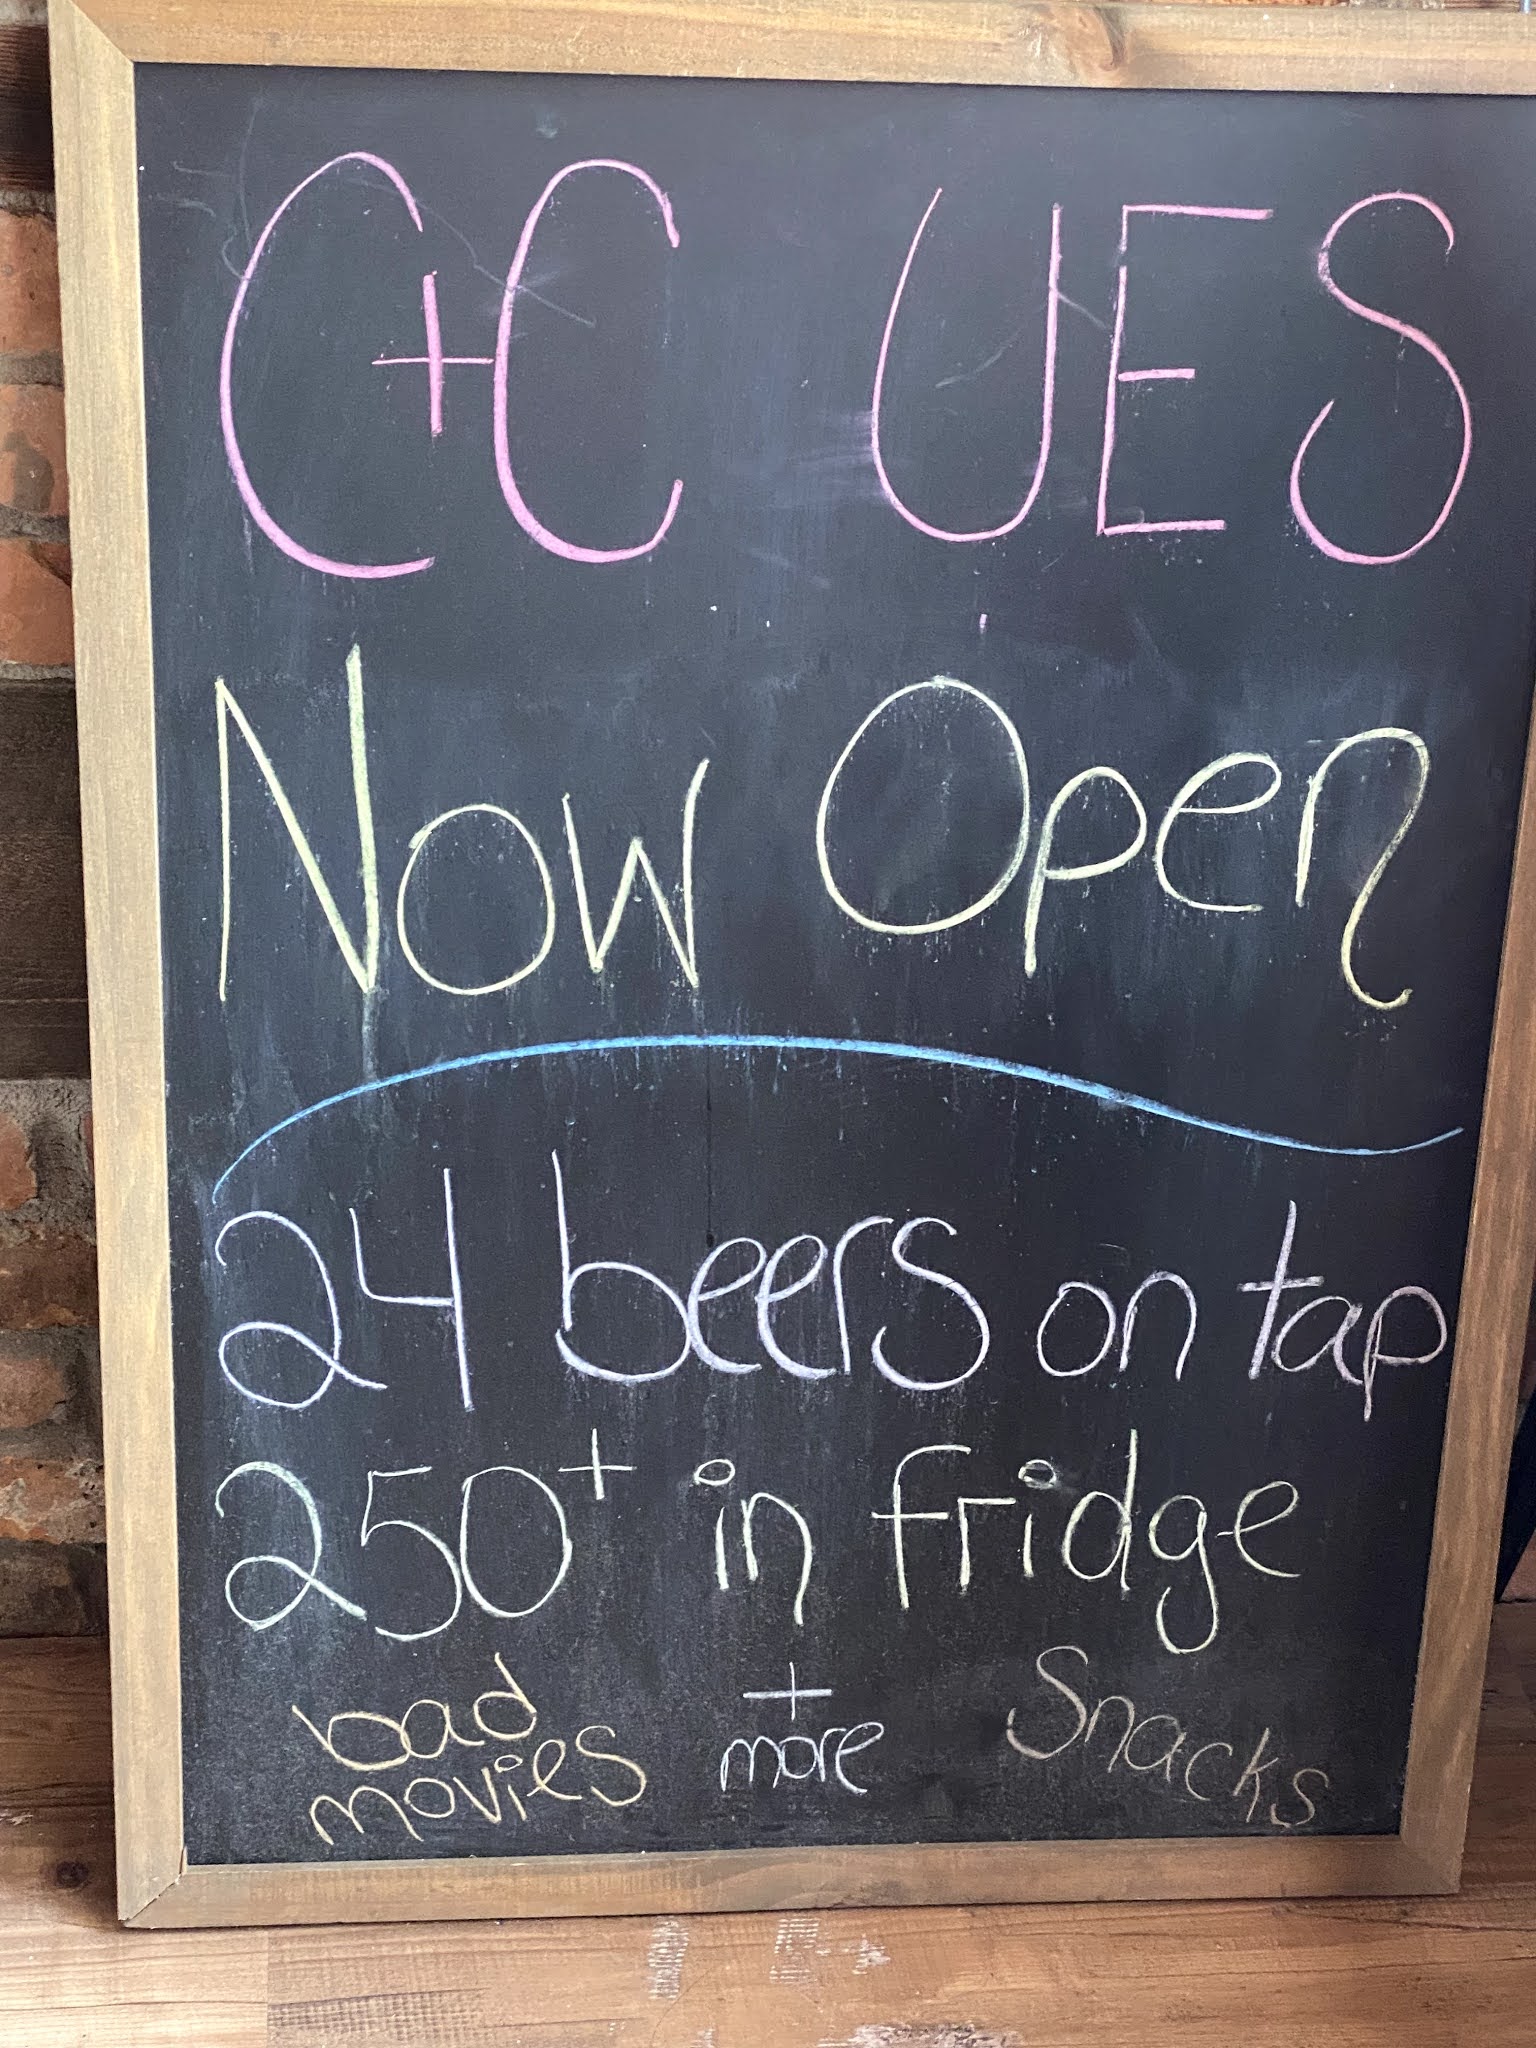 C+C UES
Now Open
24 beers on tap
250+ in fridge
bad movies
+ more
Snacks